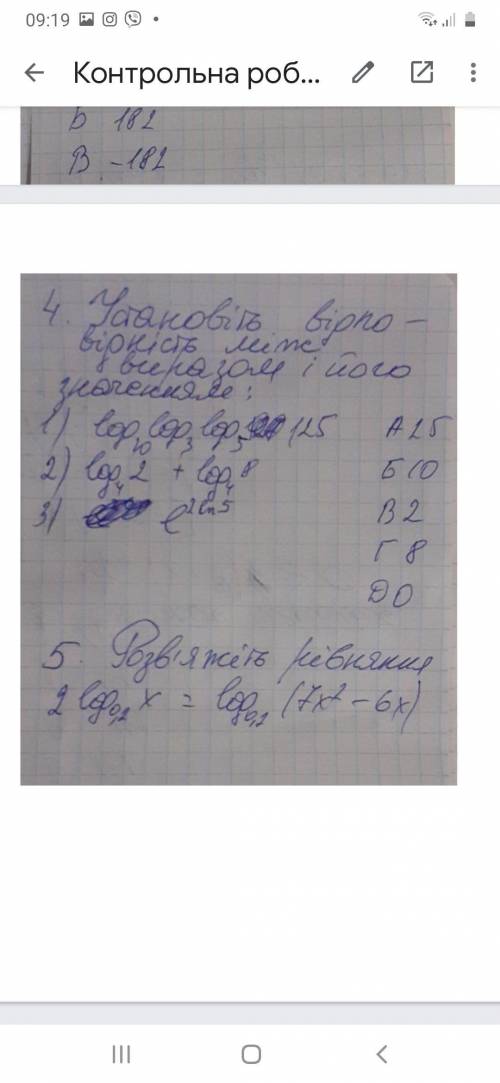 09:19
Контрольна роб...
Б 182
В -182
4. Установіть відпо-
відність між
виразом і його
значенням:
1) log₁₀ log₃ log₅ 125 А 25
2) log₄ 2 + log₄ 8 Б 10
3) e^2ln5 В 2
Г 8
Д 0
5. Розв'яжіть рівняння
2 log₀,₂ x = log₀,₂ (7x² - 6x)